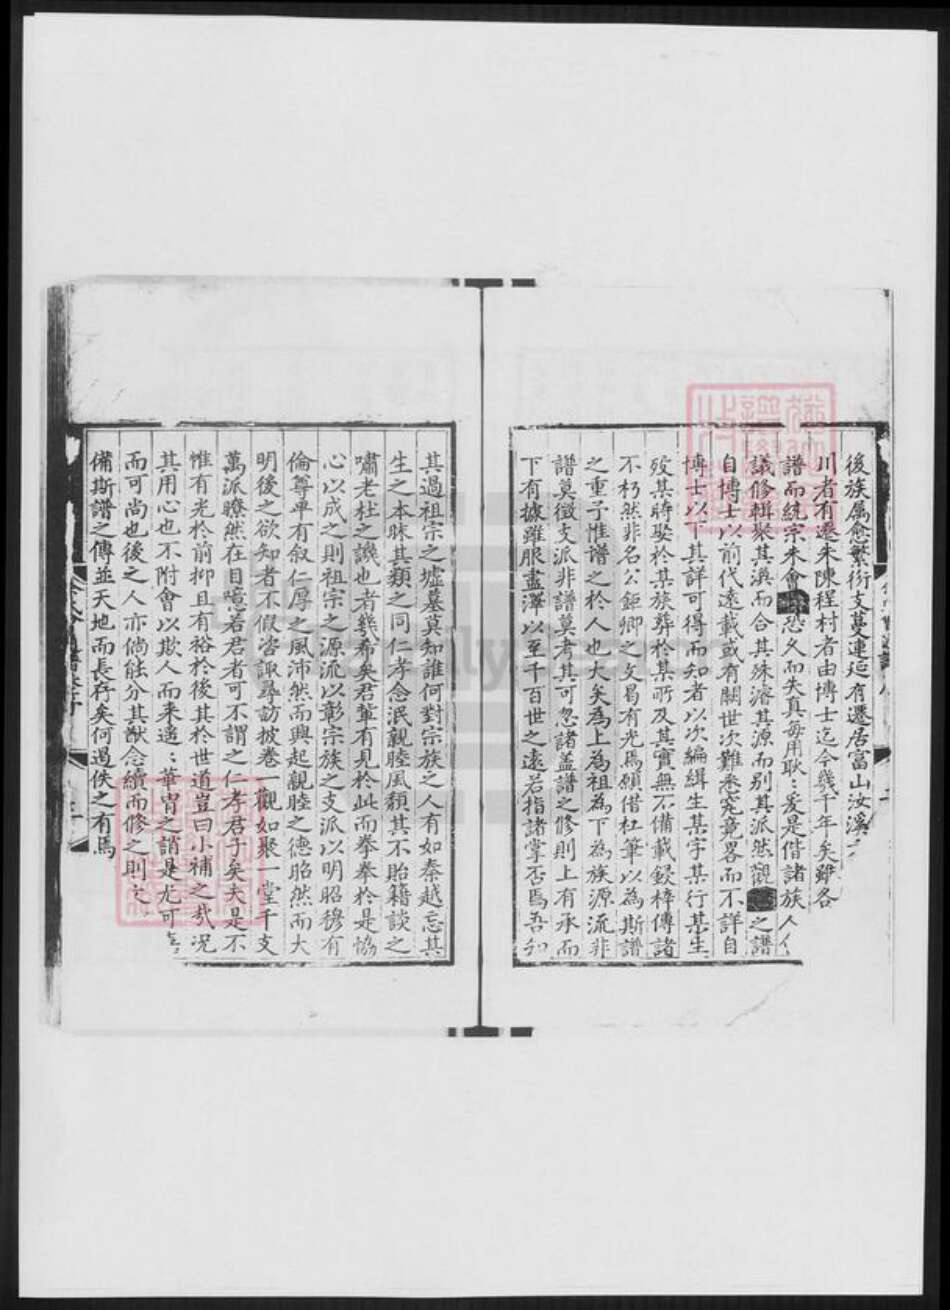 後族属愈繁衍支蔓連延有遷居富山汝溪
川者有遷朱陳程村者由博士迄今幾千年矣雖各
譜而統宗未會恐久而失真每用耿：爰是偕諸族人
議修輯聚其渙而合其殊濬其源而别其派然觀之譜
自博士以前代遠載或有闕世次難悉究竟畧而不詳自
博士以下其詳可得而知者以次編緝生某字某行某生
殁某時娶於某族葬於某所及其實無不備載鋟梓傳諸
不朽然非名公鉅卿之文曷有光焉願借杠筆以為斯譜
之重予惟譜之於人也大矣為上為祖為下為族源流非
譜莫徵支派非譜莫考其可忽諸盖譜之修則上有承而
下有據雖服盡澤以至千百世之遠若指諸掌否焉吾知
其過祖宗之墟墓莫知誰何對宗族之人有如秦越忘其
生之本昧其類之同仁孝念泯親睦風頹其不貽籍談之
嘯老杜之譏也者幾希矣君輩有見於此而拳拳於是恊
心以成之則祖宗之源流以彰宗族之支派以明昭穆有
倫尊卑有叙仁厚之風沛然而興起親睦之德昭然而大
明後之欲知者不假咨諏尋訪披卷一觀如聚一堂千支
萬派瞭然在目噫若君者可不謂之仁孝君子矣夫是不
惟有光於前抑且有裕於後其於世道豈曰小補之哉况
其用心也不附會以欺人而来遥：華胄之誚是尤可
而可尚也後之人亦倘能分其猷念續而修之則
備斯譜之傳並天地而長存矣何過佚之有焉